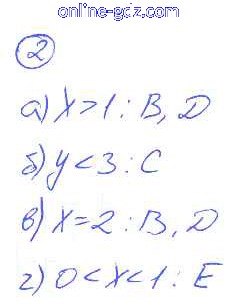 online-gdz.com
2
а) x > 1 : B, D
б) y < 3 : C
в) x = 2 : B, D
г) 0 < x < 1 : E